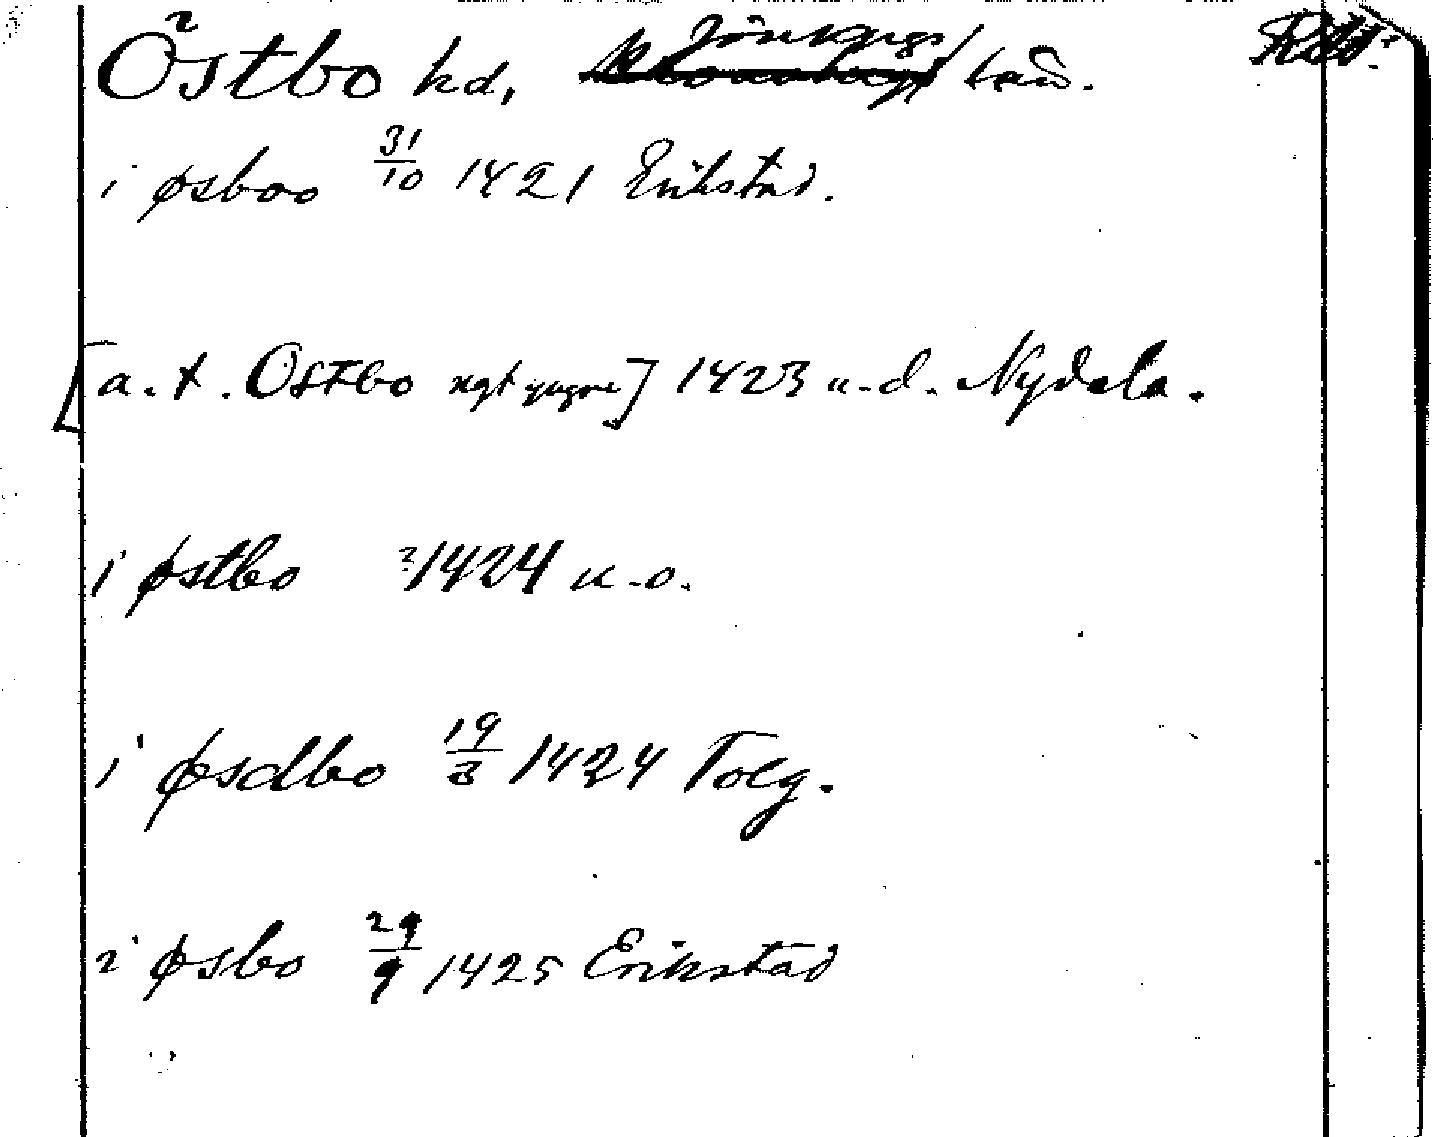 Östbo hd, Jönkpgs län.
i øsboo 31/10 1421 Erikstad.
[a. t. Östbo] 1423 u. d. Nydala.
i østbo ? 1424 u. o.
i øsdbo 19/3 1424 Tolg.
i øsbo 29/9 1425 Erikstad